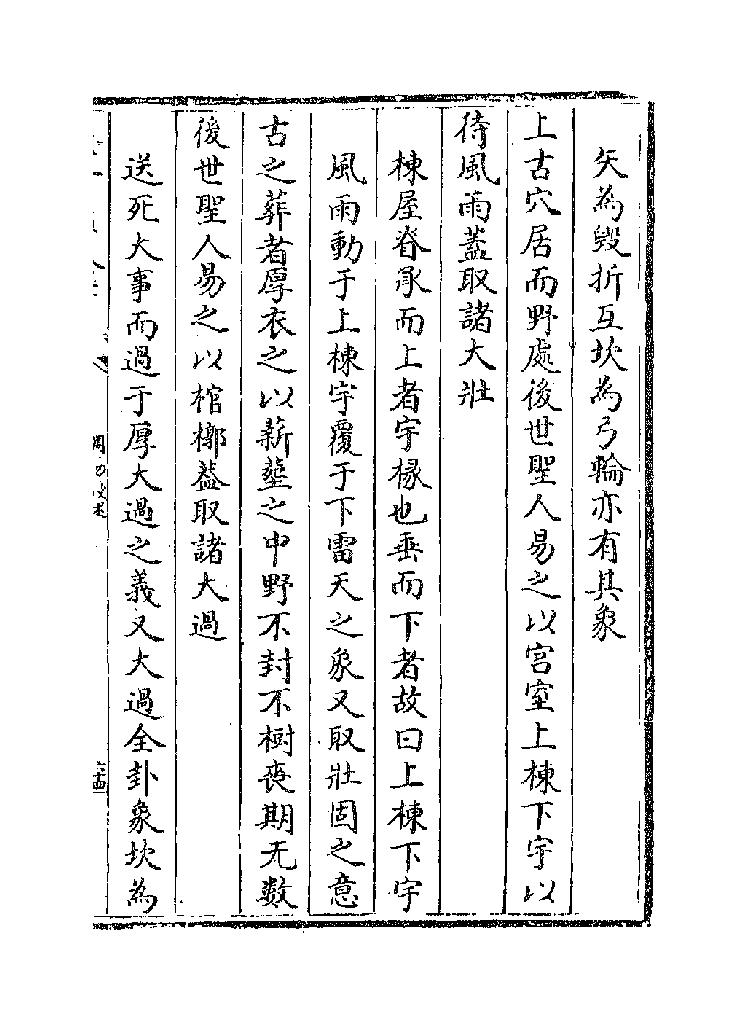 矢為毀折互坎為弓輪亦有其象
上古穴居而野處後世聖人易之以宮室上棟下宇以
待風雨蓋取諸大壯
棟屋脊承而上者宇椽也垂而下者故曰上棟下宇
風雨動于上棟宇覆于下雷天之象又取壯固之意
古之葬者厚衣之以薪葬之中野不封不樹喪期无數
後世聖人易之以棺槨蓋取諸大過
送死大事而過于厚大過之義又大過全卦象坎為